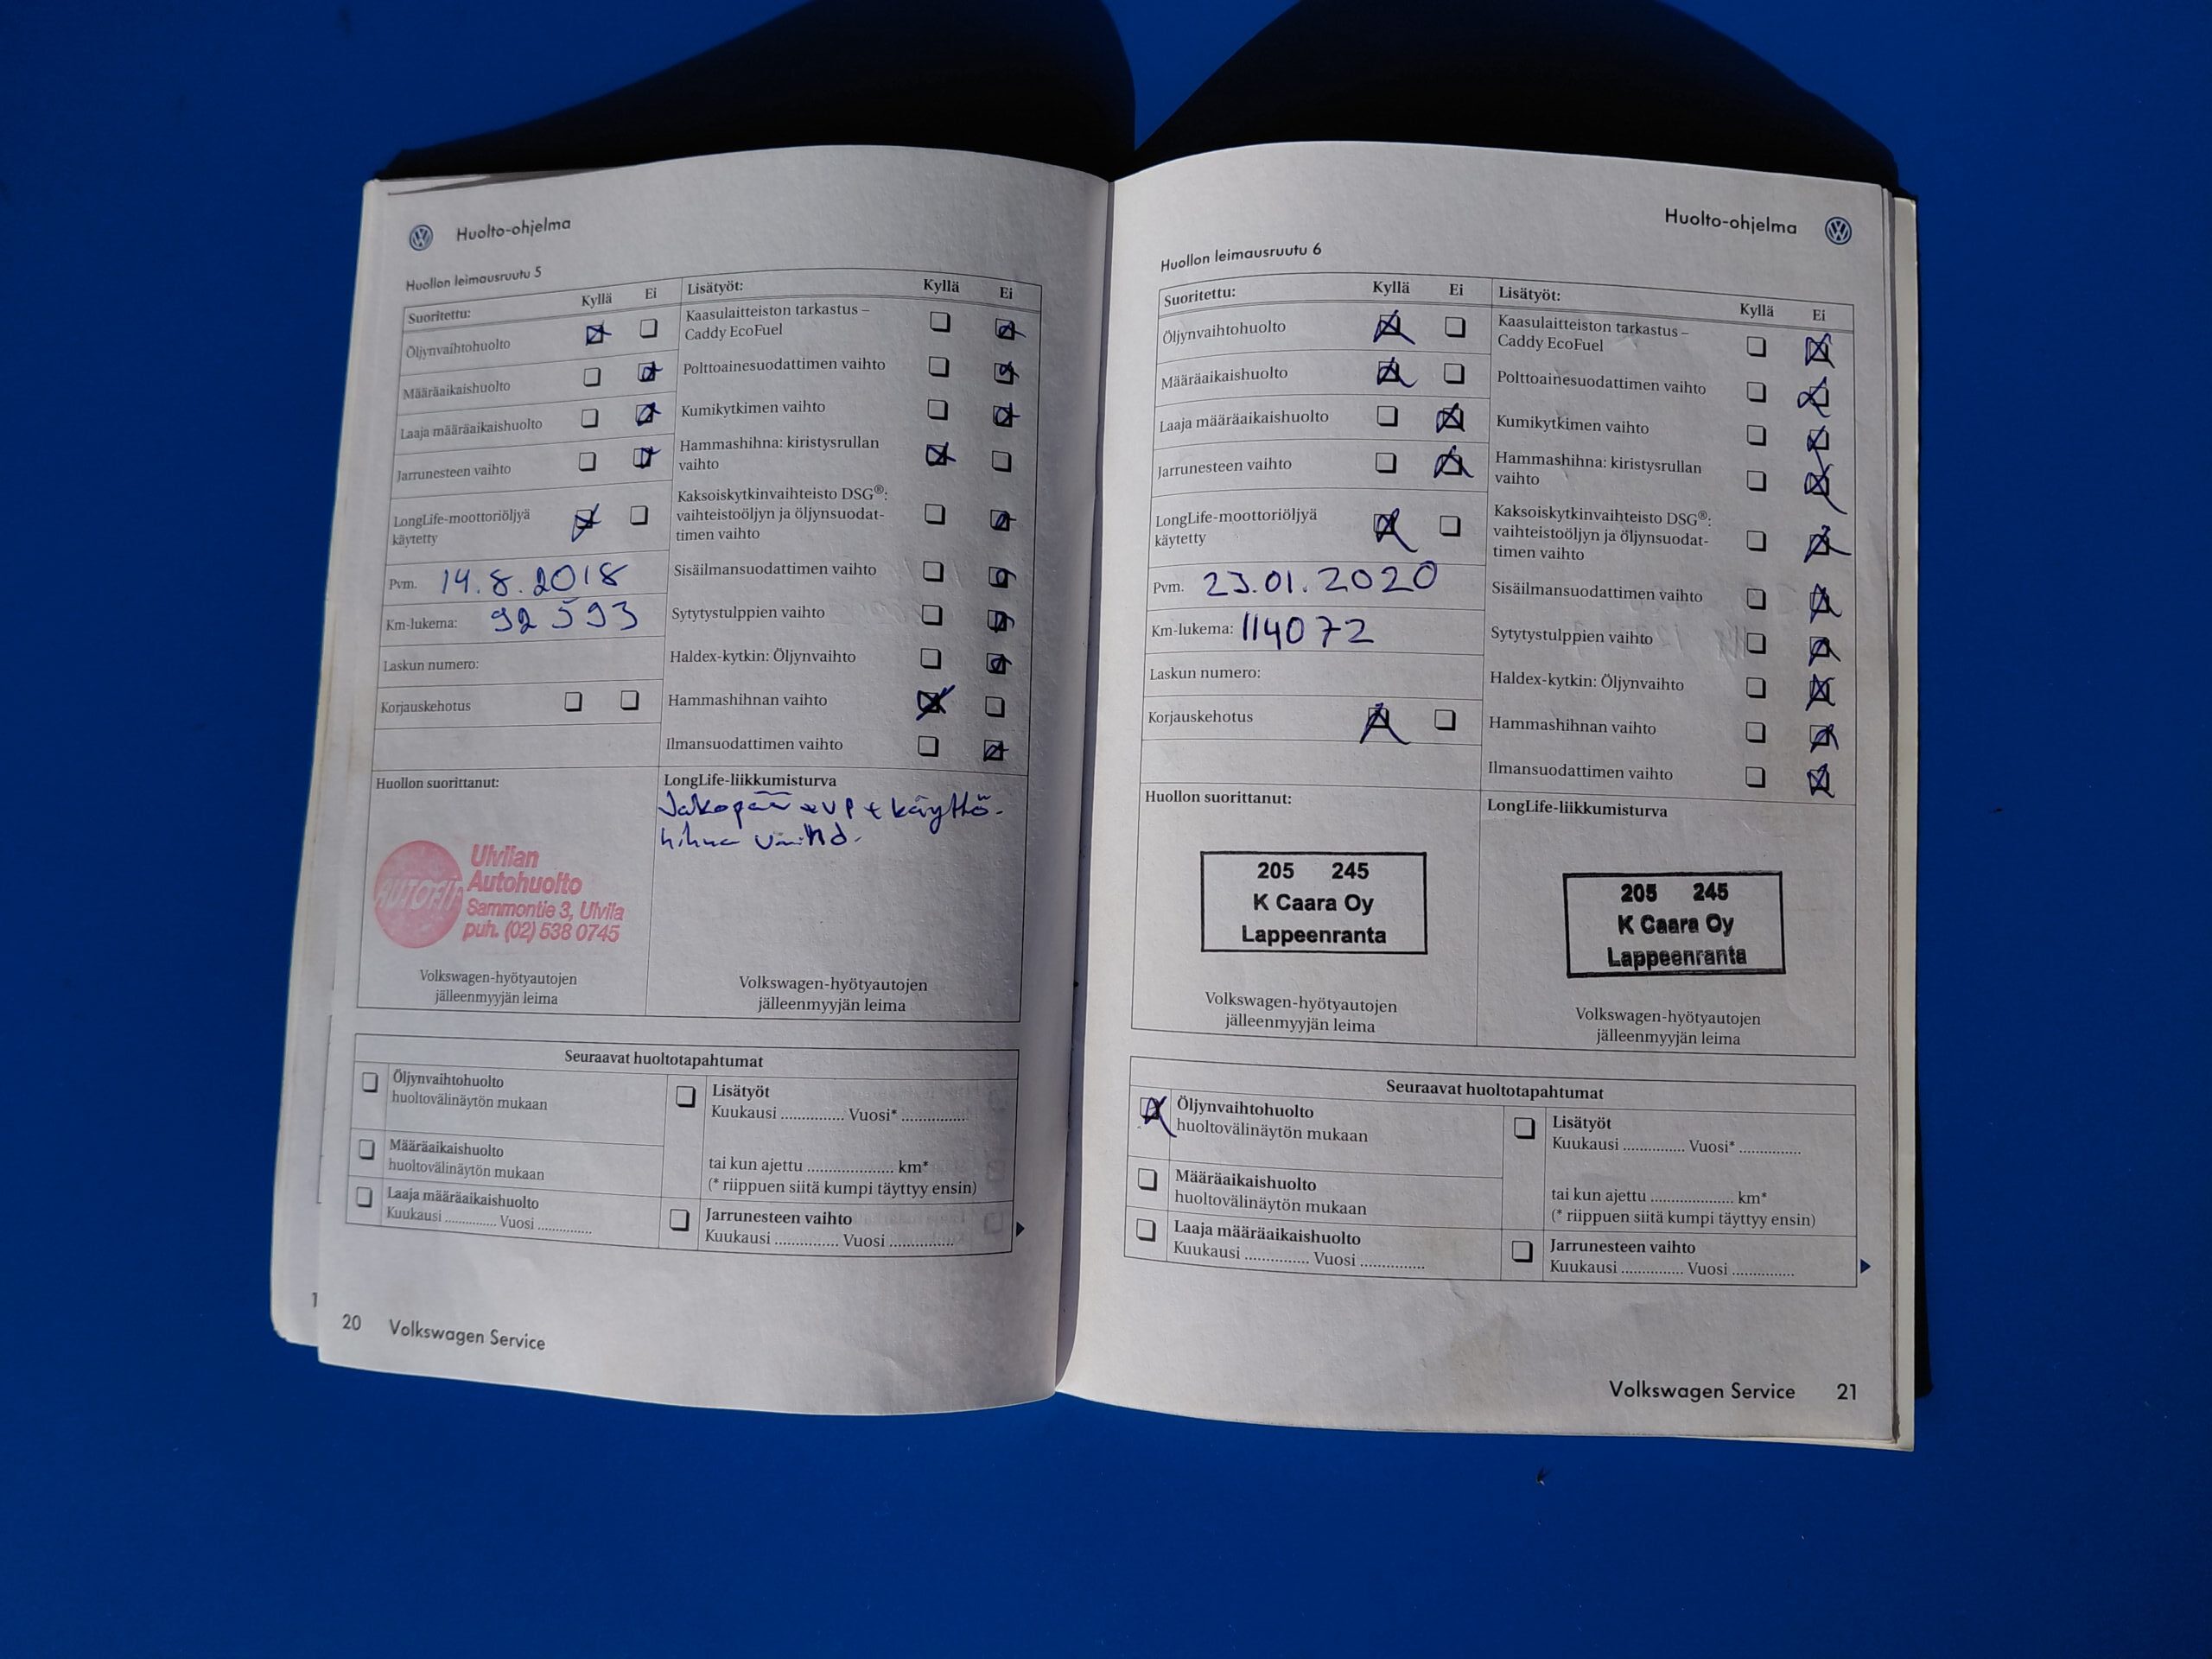 Huolto-ohjelma
Huollon leimausruutu 5
Suoritettu: Kyllä Ei
Öljynvaihtohuolto
Määräaikaishuolto
Laaja määräaikaishuolto
Jarrunesteen vaihto
LongLife-moottoriöljyä
käytetty
Pvm. 14.8.2018
Km-lukema: 92 593
Laskun numero:
Korjauskehotus
Lisätyöt: Kyllä Ei
Kaasulaitteiston tarkastus –
Caddy EcoFuel
Polttoainesuodattimen vaihto
Kumikytkimen vaihto
Hammashihna: kiristysrullan
vaihto
Kaksoiskytkinvaihteisto DSG®:
vaihteistoöljyn ja öljynsuodat-
timen vaihto
Sisäilmansuodattimen vaihto
Sytytystulppien vaihto
Haldex-kytkin: Öljynvaihto
Hammashihnan vaihto
Ilmansuodattimen vaihto
Huollon suorittanut:
AUTOFIT
Ulvilan
Autohuolto
Sammontie 3, Ulvila
puh. (02) 538 0745
Volkswagen-hyötyautojen
jälleenmyyjän leima
LongLife-liikkumisturva
Jakopää + VP + käyttö-
hihna
Volkswagen-hyötyautojen
jälleenmyyjän leima
Seuraavat huoltotapahtumat
Öljynvaihtohuolto
huoltovälinäytön mukaan
Määräaikaishuolto
huoltovälinäytön mukaan
Laaja määräaikaishuolto
Kuukausi .............. Vuosi ..............
Lisätyöt
Kuukausi .............. Vuosi* ..............
tai kun ajettu .................... km*
(* riippuen siitä kumpi täyttyy ensin)
Jarrunesteen vaihto
Kuukausi .............. Vuosi ..............
1
20 Volkswagen Service
Huolto-ohjelma
Huollon leimausruutu 6
Suoritettu: Kyllä Ei
Öljynvaihtohuolto
Määräaikaishuolto
Laaja määräaikaishuolto
Jarrunesteen vaihto
LongLife-moottoriöljyä
käytetty
Pvm. 23.01.2020
Km-lukema: 114072
Laskun numero:
Korjauskehotus
Lisätyöt: Kyllä Ei
Kaasulaitteiston tarkastus –
Caddy EcoFuel
Polttoainesuodattimen vaihto
Kumikytkimen vaihto
Hammashihna: kiristysrullan
vaihto
Kaksoiskytkinvaihteisto DSG®:
vaihteistoöljyn ja öljynsuodat-
timen vaihto
Sisäilmansuodattimen vaihto
Sytytystulppien vaihto
Haldex-kytkin: Öljynvaihto
Hammashihnan vaihto
Ilmansuodattimen vaihto
Huollon suorittanut:
205 245
K Caara Oy
Lappeenranta
Volkswagen-hyötyautojen
jälleenmyyjän leima
LongLife-liikkumisturva
205 245
K Caara Oy
Lappeenranta
Volkswagen-hyötyautojen
jälleenmyyjän leima
Seuraavat huoltotapahtumat
Öljynvaihtohuolto
huoltovälinäytön mukaan
Määräaikaishuolto
huoltovälinäytön mukaan
Laaja määräaikaishuolto
Kuukausi .............. Vuosi ..............
Lisätyöt
Kuukausi .............. Vuosi* ..............
tai kun ajettu .................... km*
(* riippuen siitä kumpi täyttyy ensin)
Jarrunesteen vaihto
Kuukausi .............. Vuosi ..............
Volkswagen Service 21